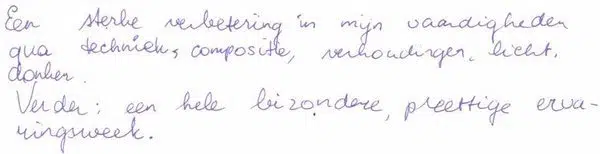 Een sterke verbetering in mijn vaardigheden
qua techniek, compositie, verhoudingen, licht,
donker.
Verder: een hele bizondere, prettige erva-
ringsweek.